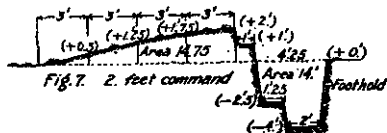 3' 3' 3' 3'
(+2')
(+0.5) (+1'.25) (+1'.75) 1' (+1')
Area 14.75 4'.25 (+0')
Fig.7. 2. feet command Area 14.' Foothold
(-2'.5) 1'.25
(-4') 2'